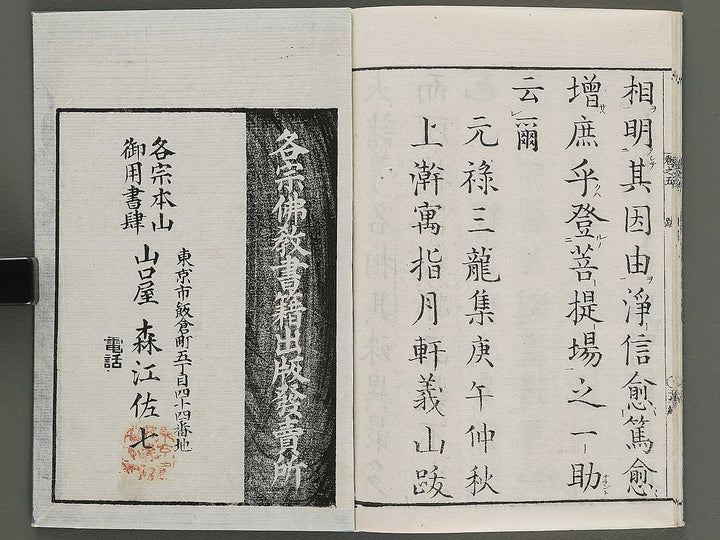 相明其因由淨信愈篤愈
增庶乎登菩提場之一助
云爾
元祿三龍集庚午仲秋
上澣寓指月軒義山跋
各宗佛教書籍出版發賣所
各宗本山
御用書肆
東京市飯倉町五丁目四十四番地
山口屋 森江佐七
電話